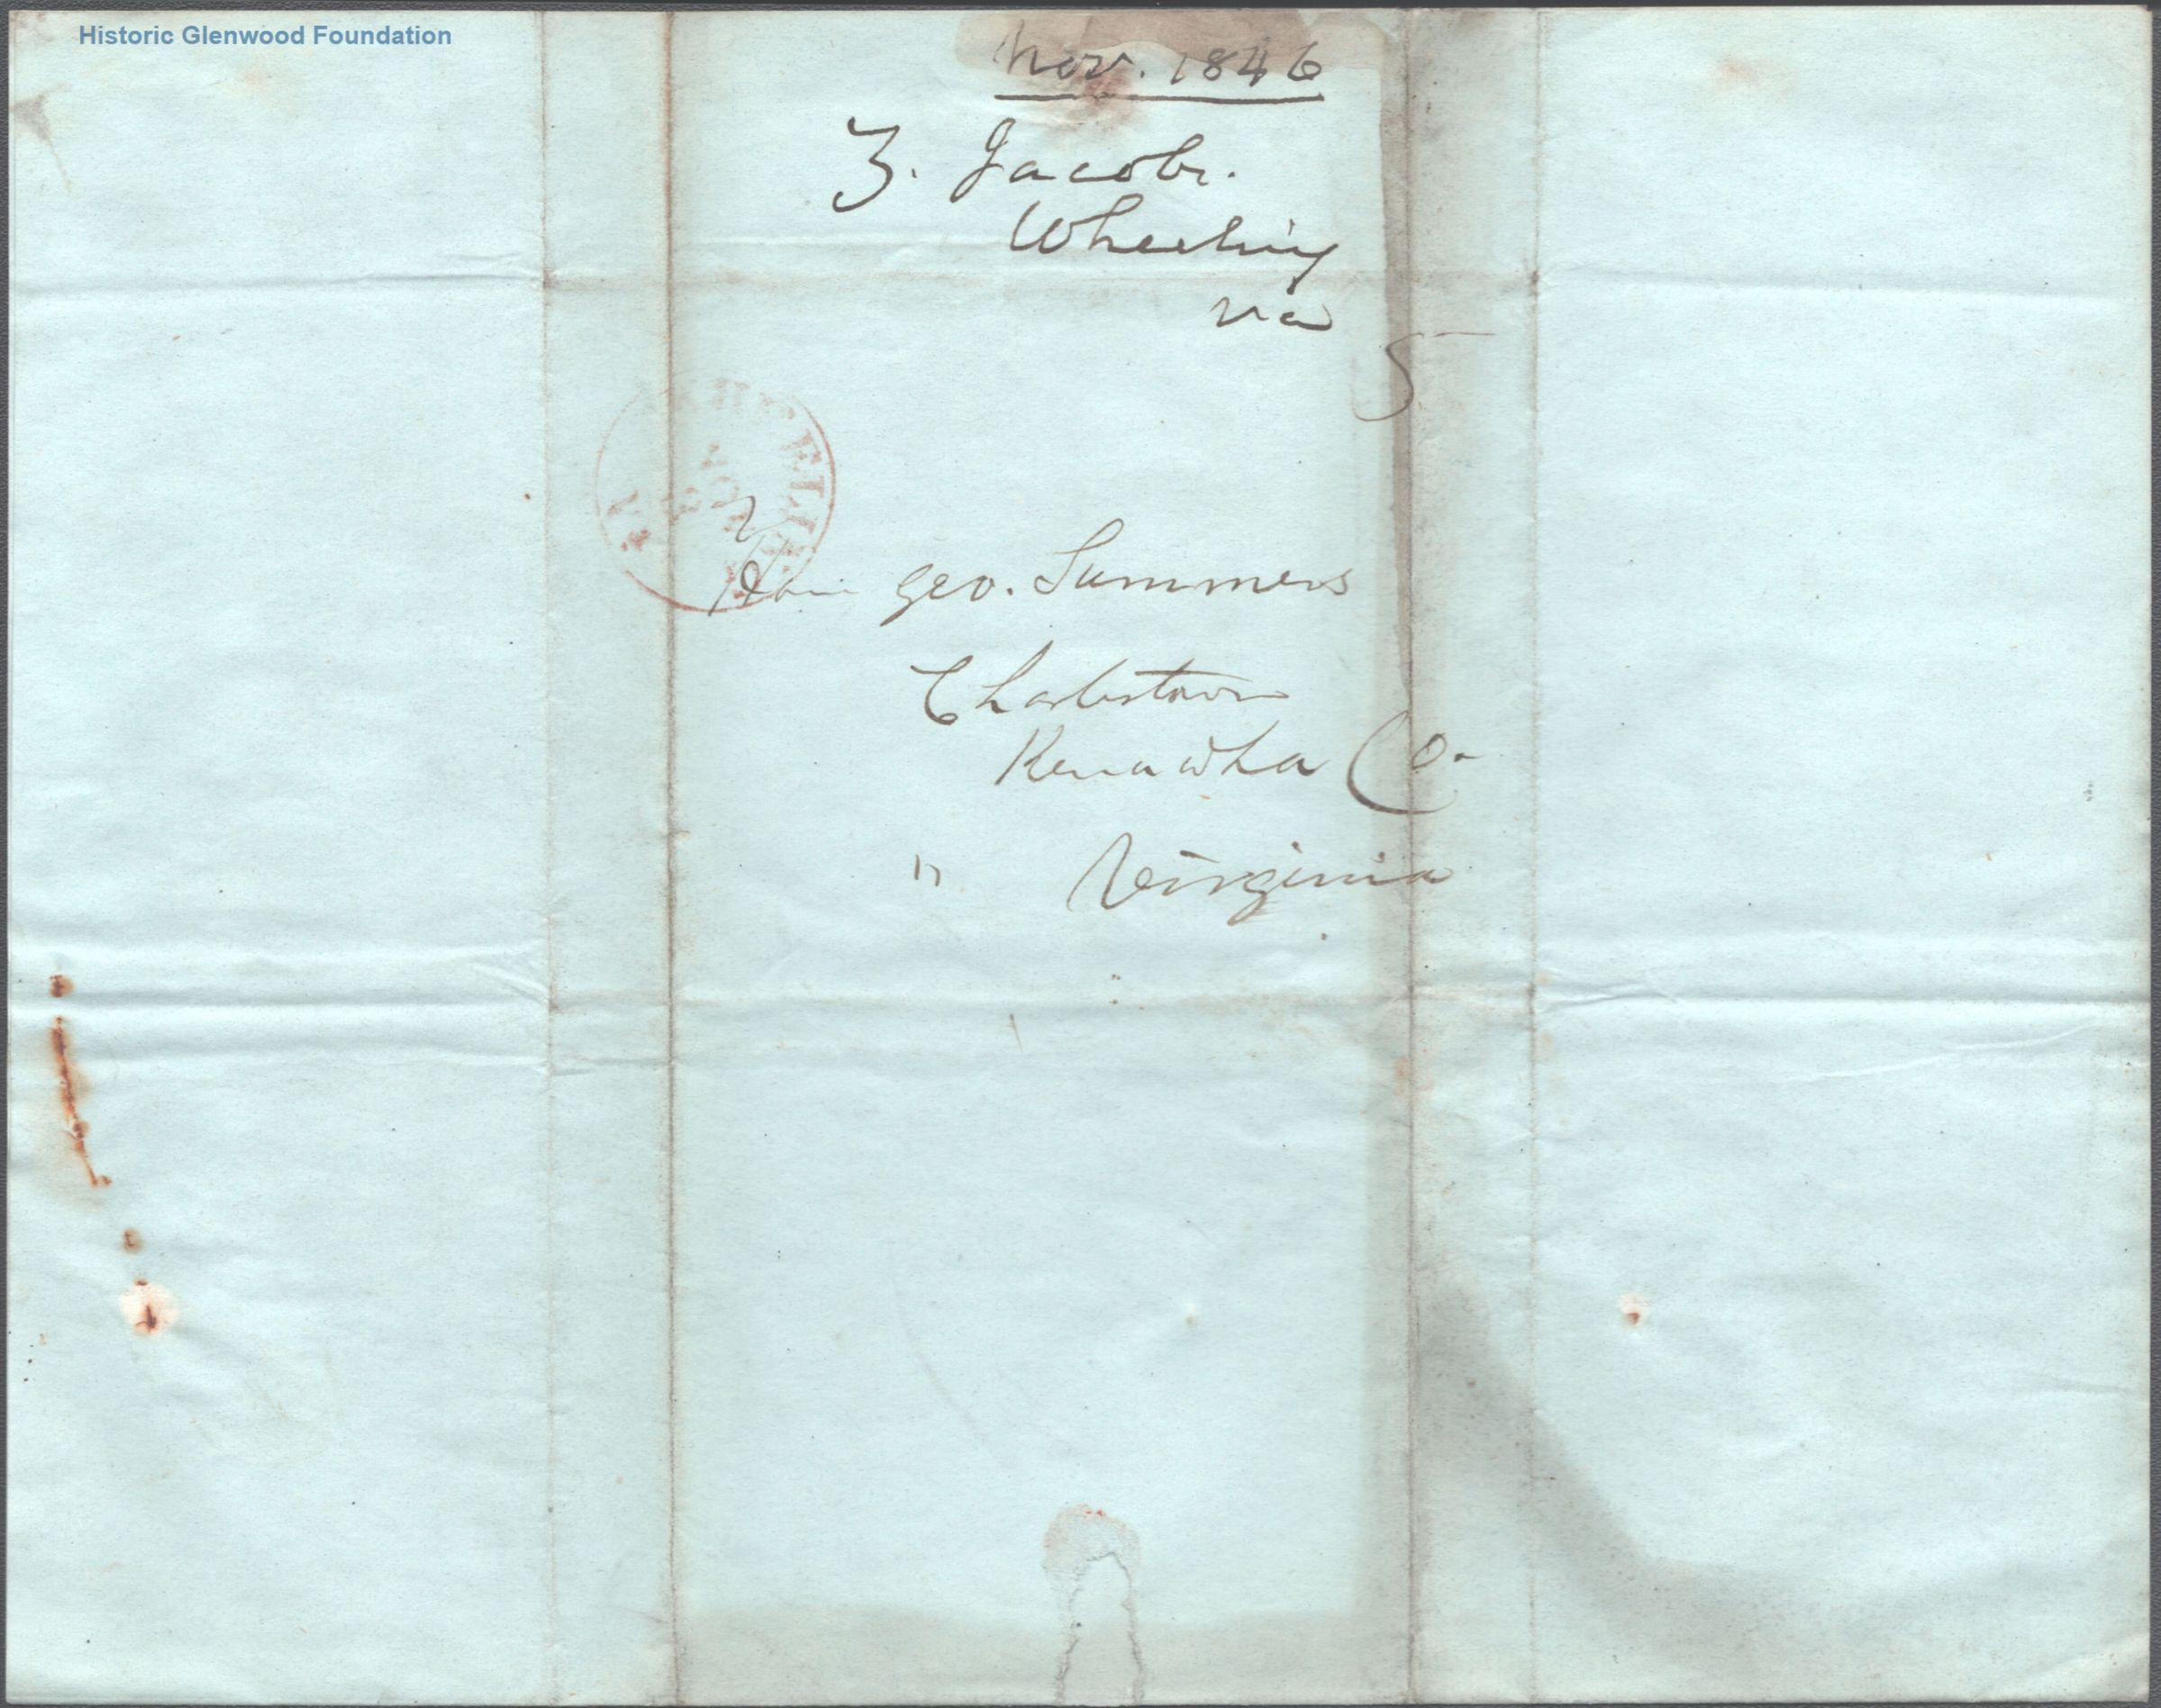 Historic Glenwood Foundation
Nov. 1846
Z. Jacob.
Wheeling
Va
5
Geo. Summers
Charlestown
Kenawha Co.
" Virginia